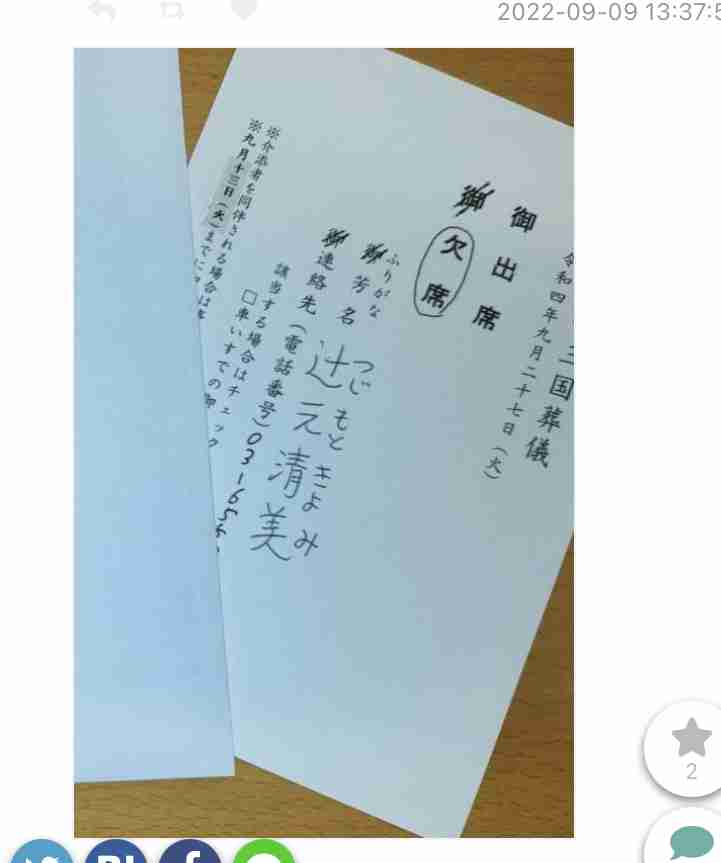 2022-09-09 13:37:5
三国葬儀
令和四年九月二十七日(火)
御出席
御欠席
ふりがな つじもときよみ
御芳名 辻元清美
御連絡先(電話番号)03-65
該当する場合はチェック
□車いすでの御
※介添者を同伴される場合は
※九月十三日(火)までに
B!
f
2